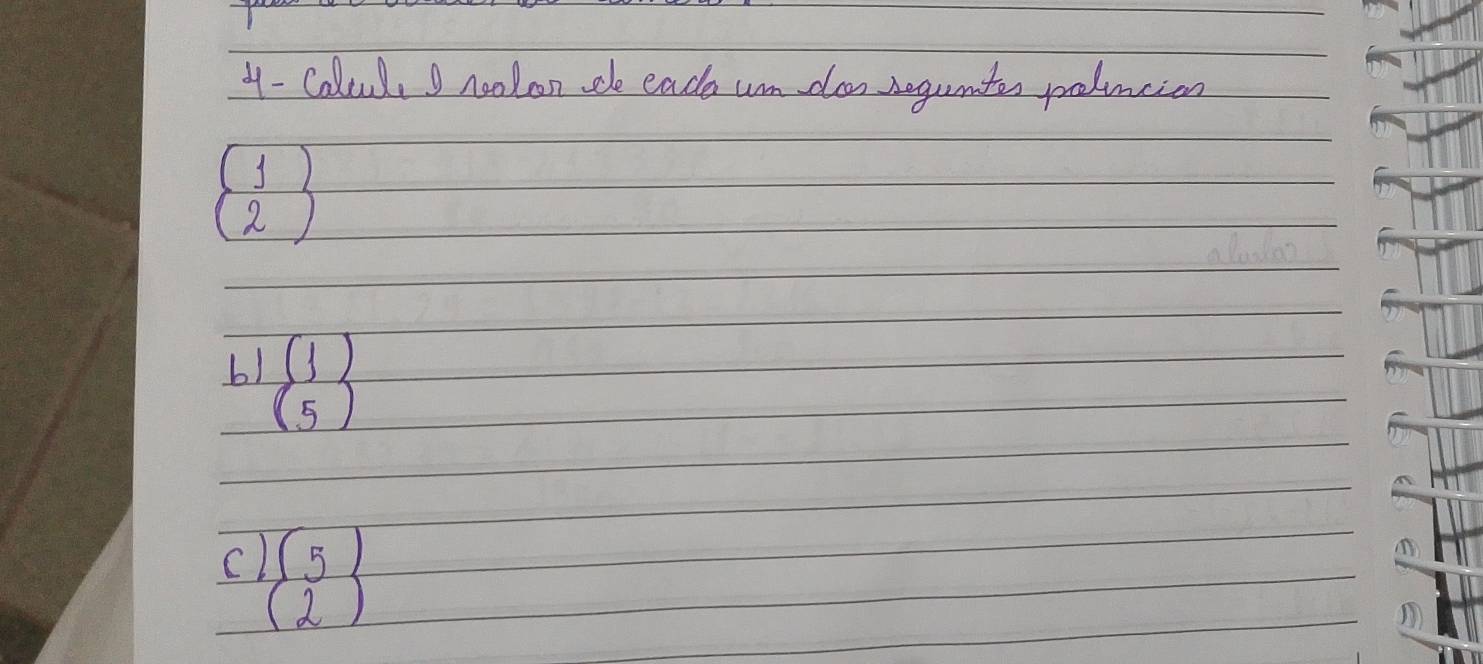 4- Calcule o valor de cada um das seguintes potencias
( 1 )
( 2 )
b) ( 1 )
( 5 )
c) ( 5 )
( 2 )